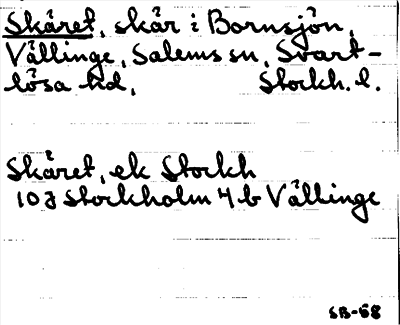 Skäret, skär i Bornsjön,
Vällinge, Salems sn, Svart-
lösa hd, Stockh. l.
Skäret, ek Stockh
10 J Stockholm 4 b Vällinge
SB-68